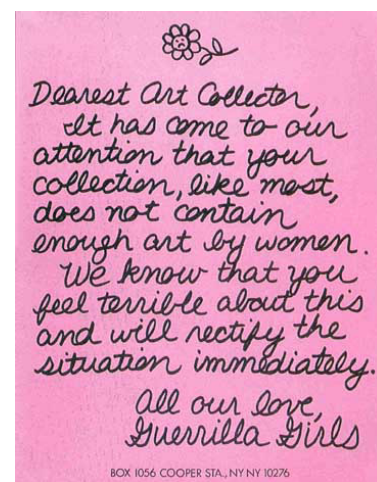 Dearest Art Collector,
It has come to our
attention that your
collection, like most,
does not contain
enough art by women.
We know that you
feel terrible about this
and will rectify the
situation immediately.
All our love,
Guerrilla Girls
BOX 1056 COOPER STA., NY NY 10276